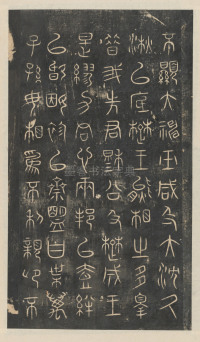 不顯大神巫咸及大沈久
湫以底楚王熊相之多辠
昔我先君穆公及楚成王
是繆力同心兩邦以壹絆
以婚姻袗以齋盟曰枼萬
子孫毋相為不利親卬不